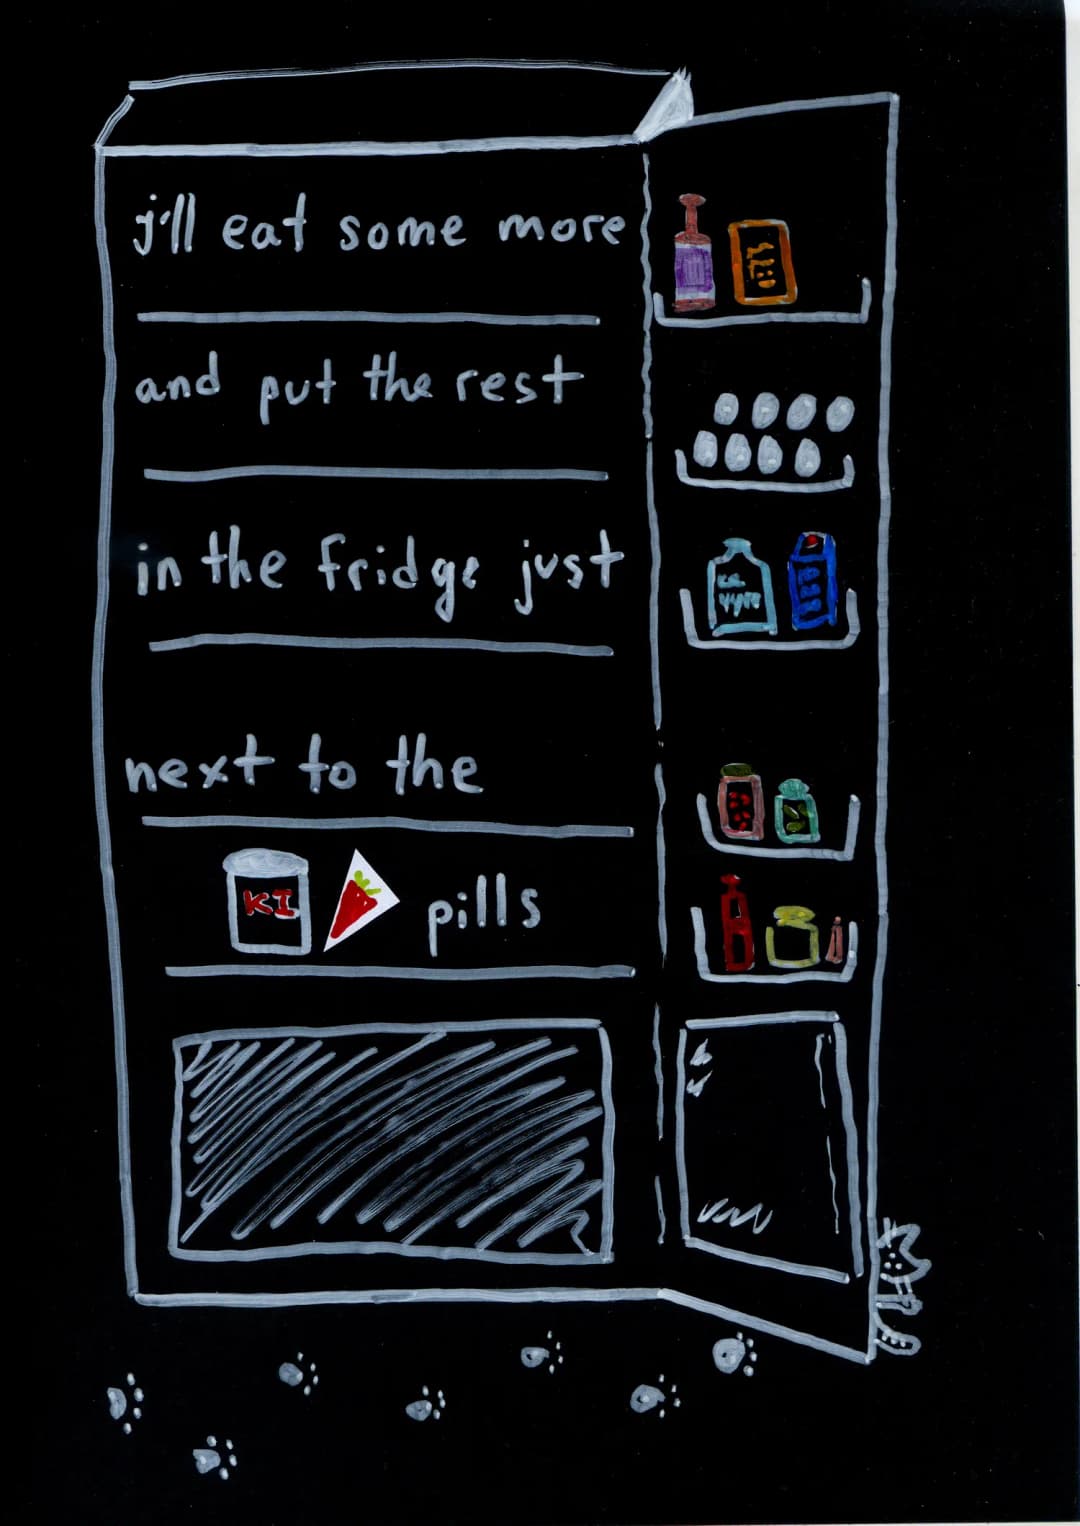 i'll eat some more
and put the rest
in the fridge just
next to the
KI pills